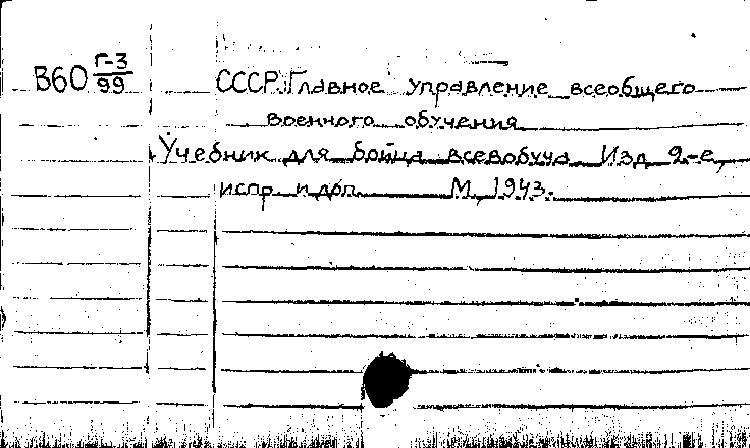 В60 Г-3/99
СССР. Главное управление всеобщего
военного обучения
Учебник для бойца всевобуча. Изд. 2-е,
испр. и доп. М., 1943.